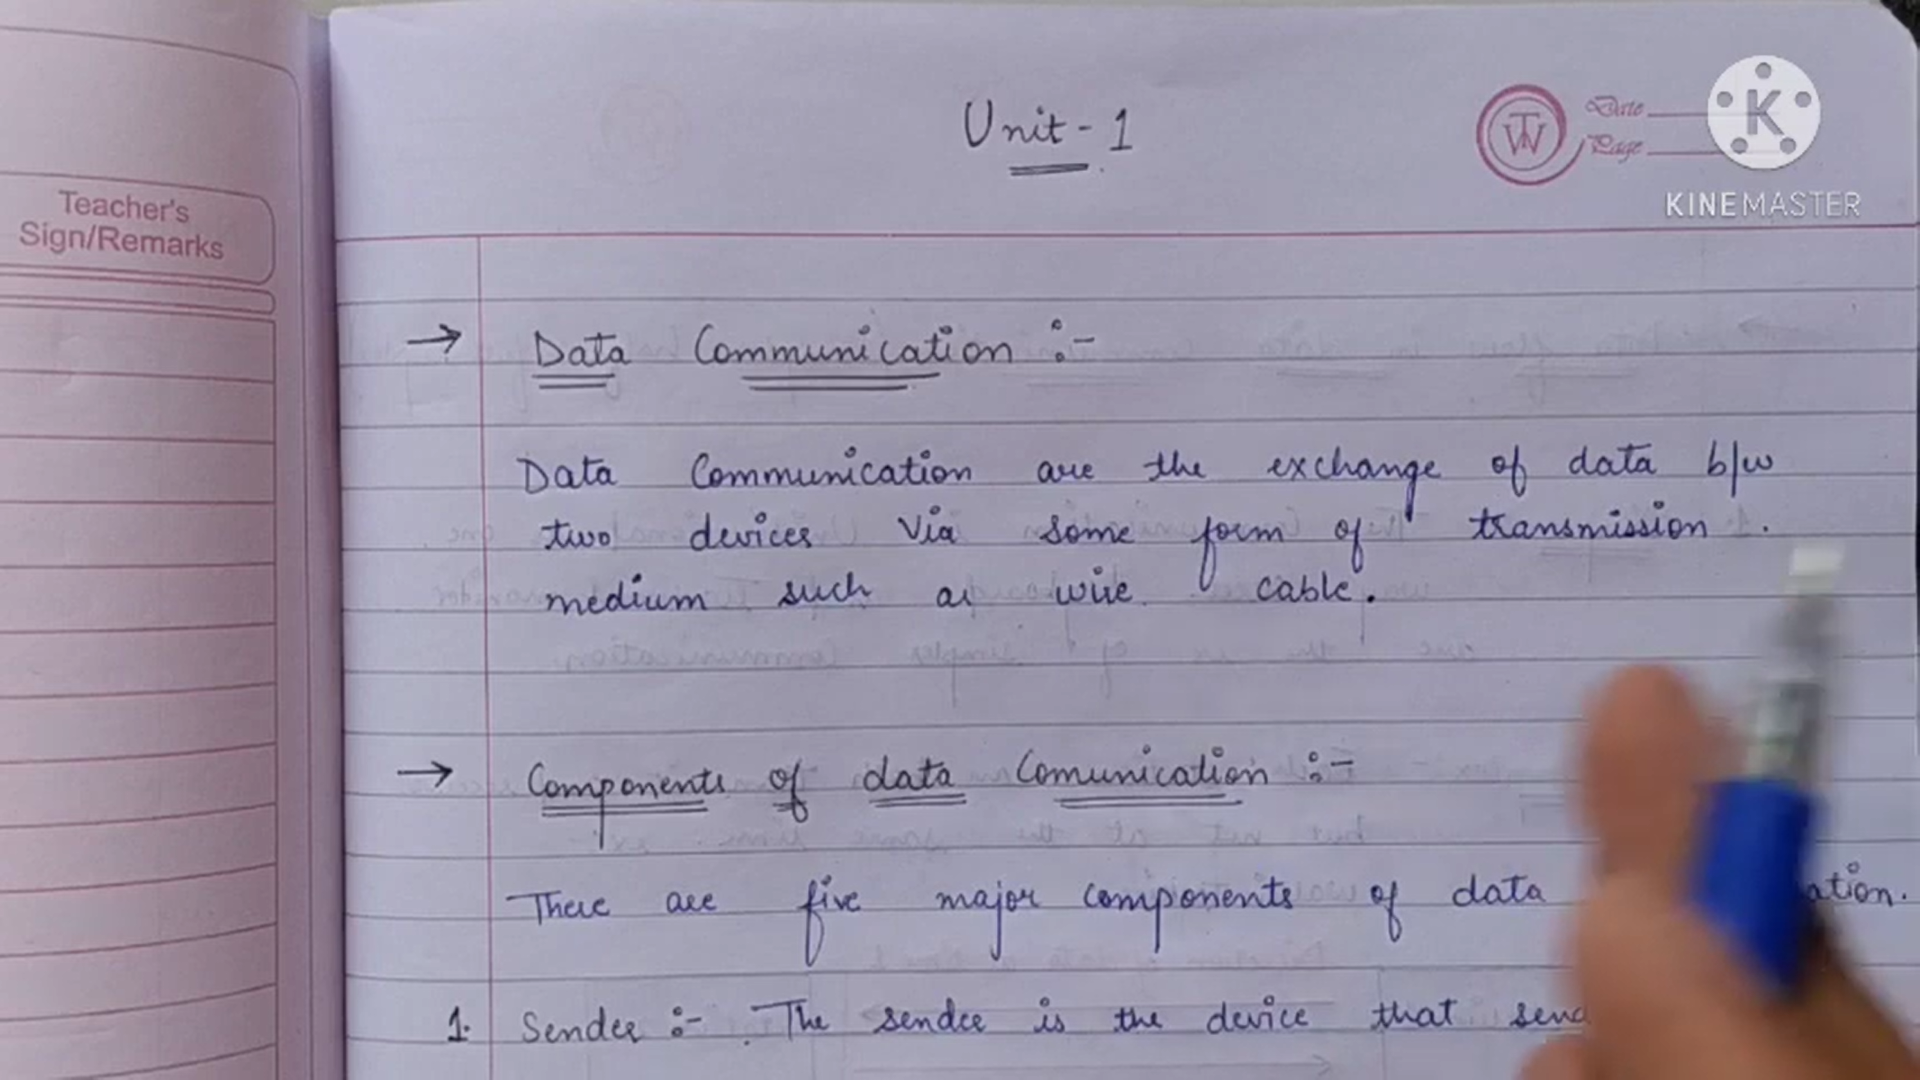 Unit - 1
Date
Page
TW
K
KINEMASTER
Teacher's
Sign/Remarks
→ Data Communication :-
Data Communication are the exchange of data b/w
two devices via some form of transmission .
medium such as wire cable.
→ Components of data Comunication :-
There are five major components of data ation.
1. Sender :- The sender is the device that send